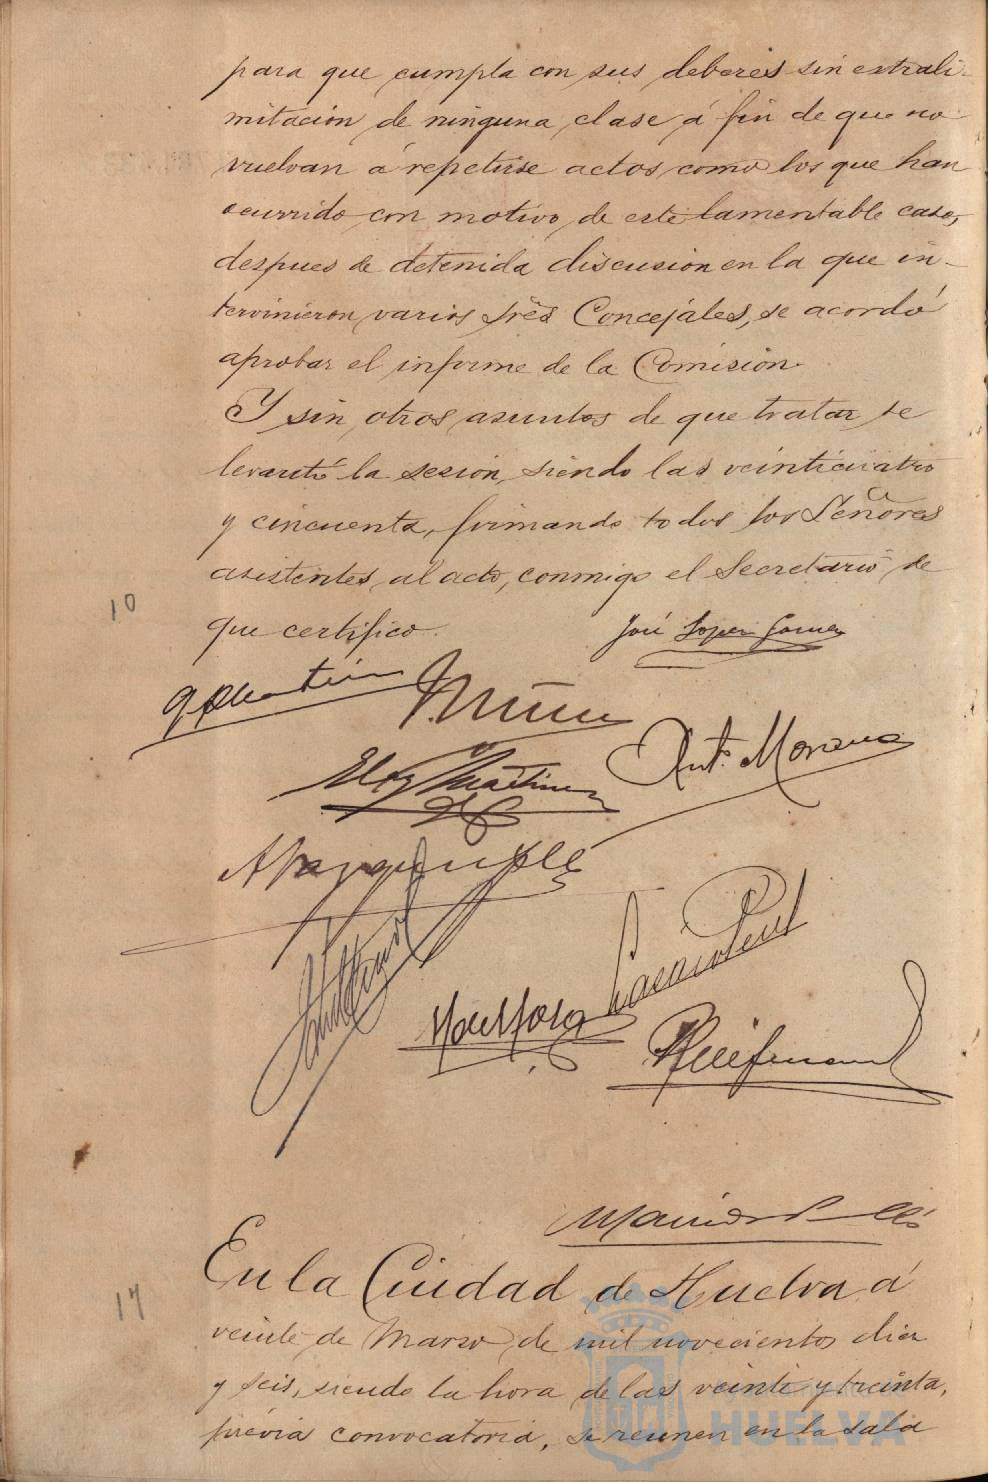 para que cumpla con sus deberes sin extrali-
mitación de ninguna clase á fin de que no
vuelvan á repetirse actos como los que han
ocurrido con motivo de este lamentable caso,
despues de detenida discusion en la que in-
tervinieron varios Sres Concejales, se acordó
aprobar el informe de la Comision.
Y sin otros asuntos de que tratar se
levantó la sesion, siendo las veinticuatro
y cincuenta, firmando todos los Señores
asistentes al acto, conmigo el Secretario de
10
que certifico.
José Lopez Gomez
Eloy Martinez
Ant. Moreno
En la Ciudad de Huelva á
17
veinte de Marzo de mil novecientos diez
y seis, siendo la hora de las veinte y treinta,
prévia convocatoria, se reunen en la sala
HUELVA